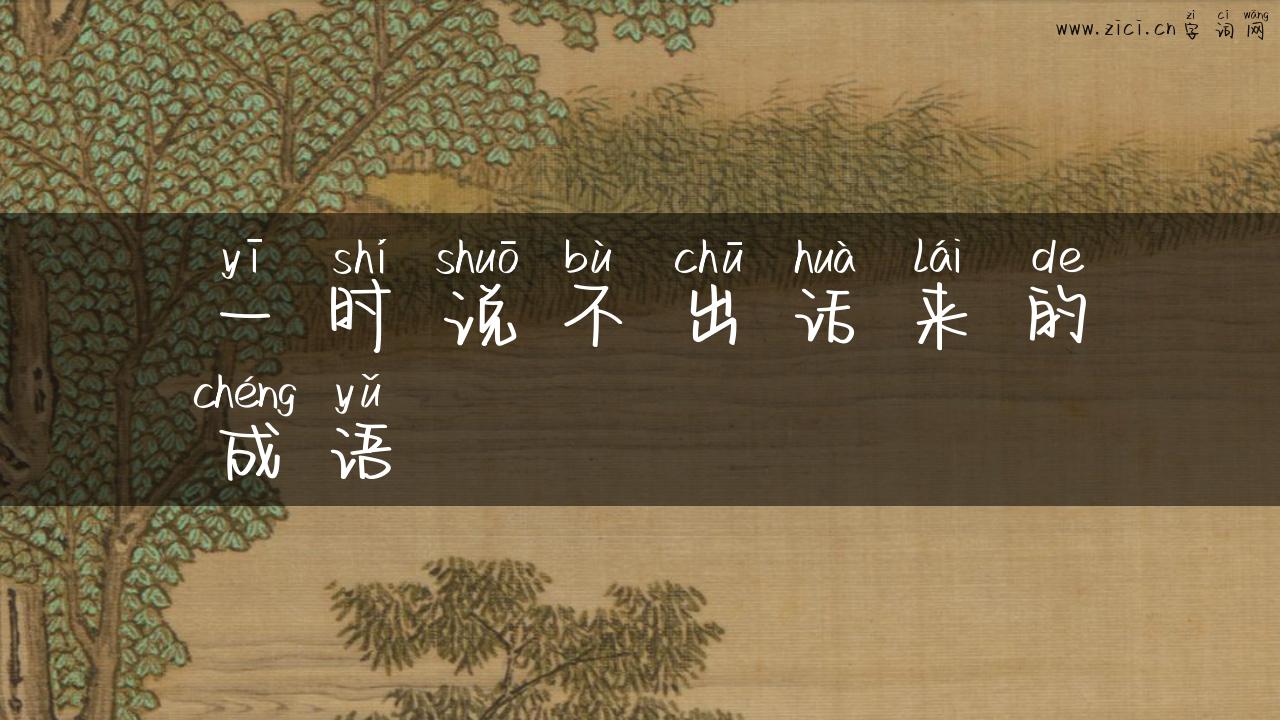 zì cí wǎng
www.zici.cn字词网
yī shí shuō bù chū huà lái de
一时说不出话来的
chéng yǔ
成语